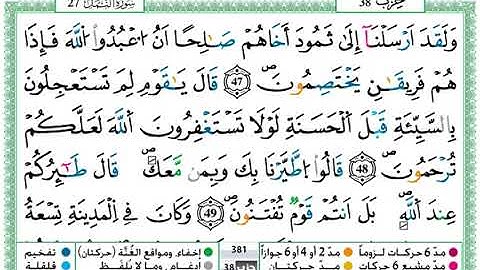 حزب 38 سورة النمل 27
وَلَقَدَ ارْسَلْنَآ إِلَىٰ ثَمُودَ أَخَاهُمْ صَٰلِحاً اَنُ اعْبُدُوا۟ اللَّهَ فَإِذَا
هُمْ فَرِيقَٰنِ يَخْتَصِمُونَ 47 قَالَ يَٰقَوْمِ لِمَ تَسْتَعْجِلُونَ
بِالسَّيِّئَةِ قَبْلَ اَلْحَسَنَةِ لَوْلَا تَسْتَغْفِرُونَ اَللَّهَ لَعَلَّكُمْ
تُرْحَمُونَ 48 قَالُوا۟ اُطَّيَّرْنَا بِكَ وَبِمَن مَّعَكَ قَالَ طَٰٓئِرُكُمْ
عِندَ اَللَّهِ بَلَ اَنتُمْ قَوْمٌ تُفْتَنُونَ 49 وَكَانَ فِي اِلْمَدِينَةِ تِسْعَةُ
مدّ 6 حركات لزوماً مدّ 2 أو 4 أو 6 جوازاً 381 إخفاء، ومواقع الغُنَّة (حركتان) تفخيم
مدّ مشبع 6 حركات مدّ حركتان 38 إدغام، وما لا يُلفظ قلقلة